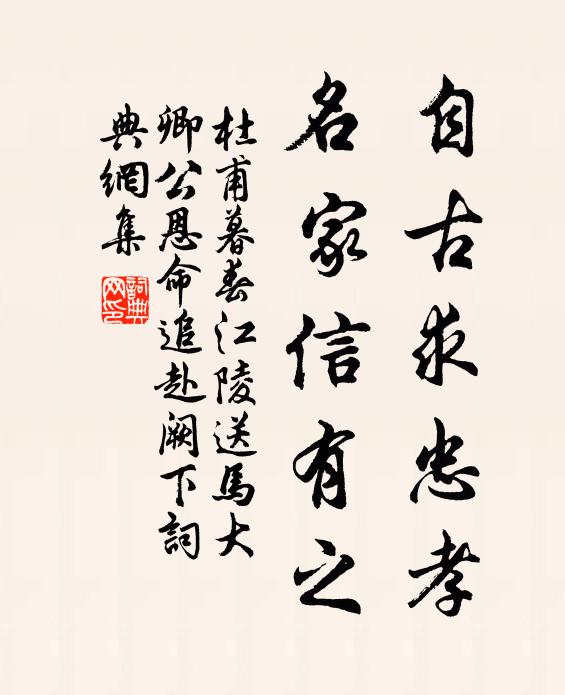 自古求忠孝
名家信有之
杜甫暮春江陵送馬大
卿公恩命追赴闕下詞
典網集
詞典
网印